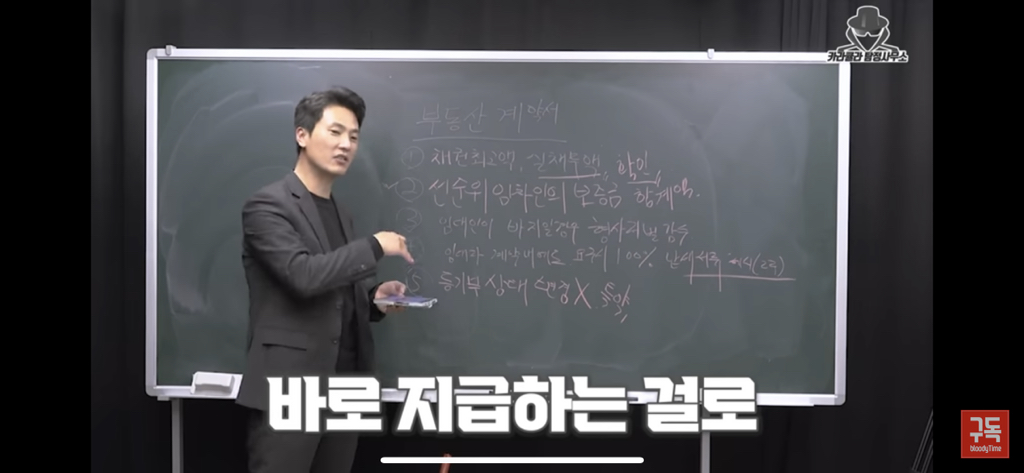 카라큘라 탐정사무소
부동산 계약서
① 채권최고액, 실채무액, 확인
② 선순위 임차인의 보증금 합계액.
③ 임대인이 바지일경우 형사처벌 감수
계약 요구시 100%
⑤ 등기부 상태 변경X 특약
바로 지급하는 걸로
구독
bloodyTime